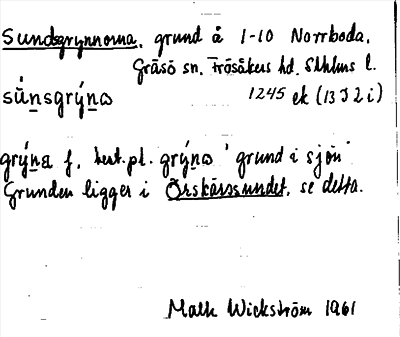 Sundsgrynnorna, grund å 1-10 Norrboda,
Gräsö sn, Frösåkers hd, Sthlms l.
sǘn̲sgrýn̲ɑ 1245 ek (13 J 2 i)
grýn̲a f. best. pl. grýn̲ɑ 'grund i sjön'
Grunden ligger i Örskärssundet, se detta.
Wickström 1961